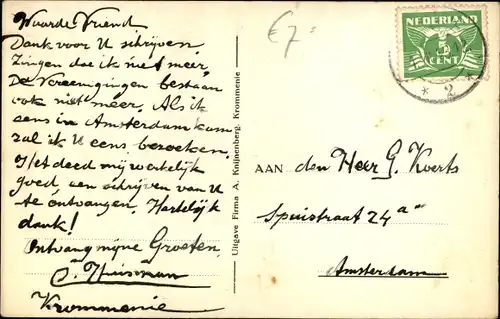 Waarde Vriend
Dank voor U schrijven,
Zingen doe ik niet meer,
De Vereenigingen bestaan
ook niet meer, Als ik
eens in Amsterdam kom
zal ik U eens bezoeken.
Het deed mij werkelijk
goed, een schrijven van U
te ontvangen, Hartelijk
dank!
Ontvang mijne Groeten,
J. Huisman
Krommenie
Uitgave Firma A. Knijnenberg, Krommenie
€7=
NEDERLAND
5
CENT
* 2 *
AAN den Heer G. Koerts
Spuistraat 24a
Amsterdam